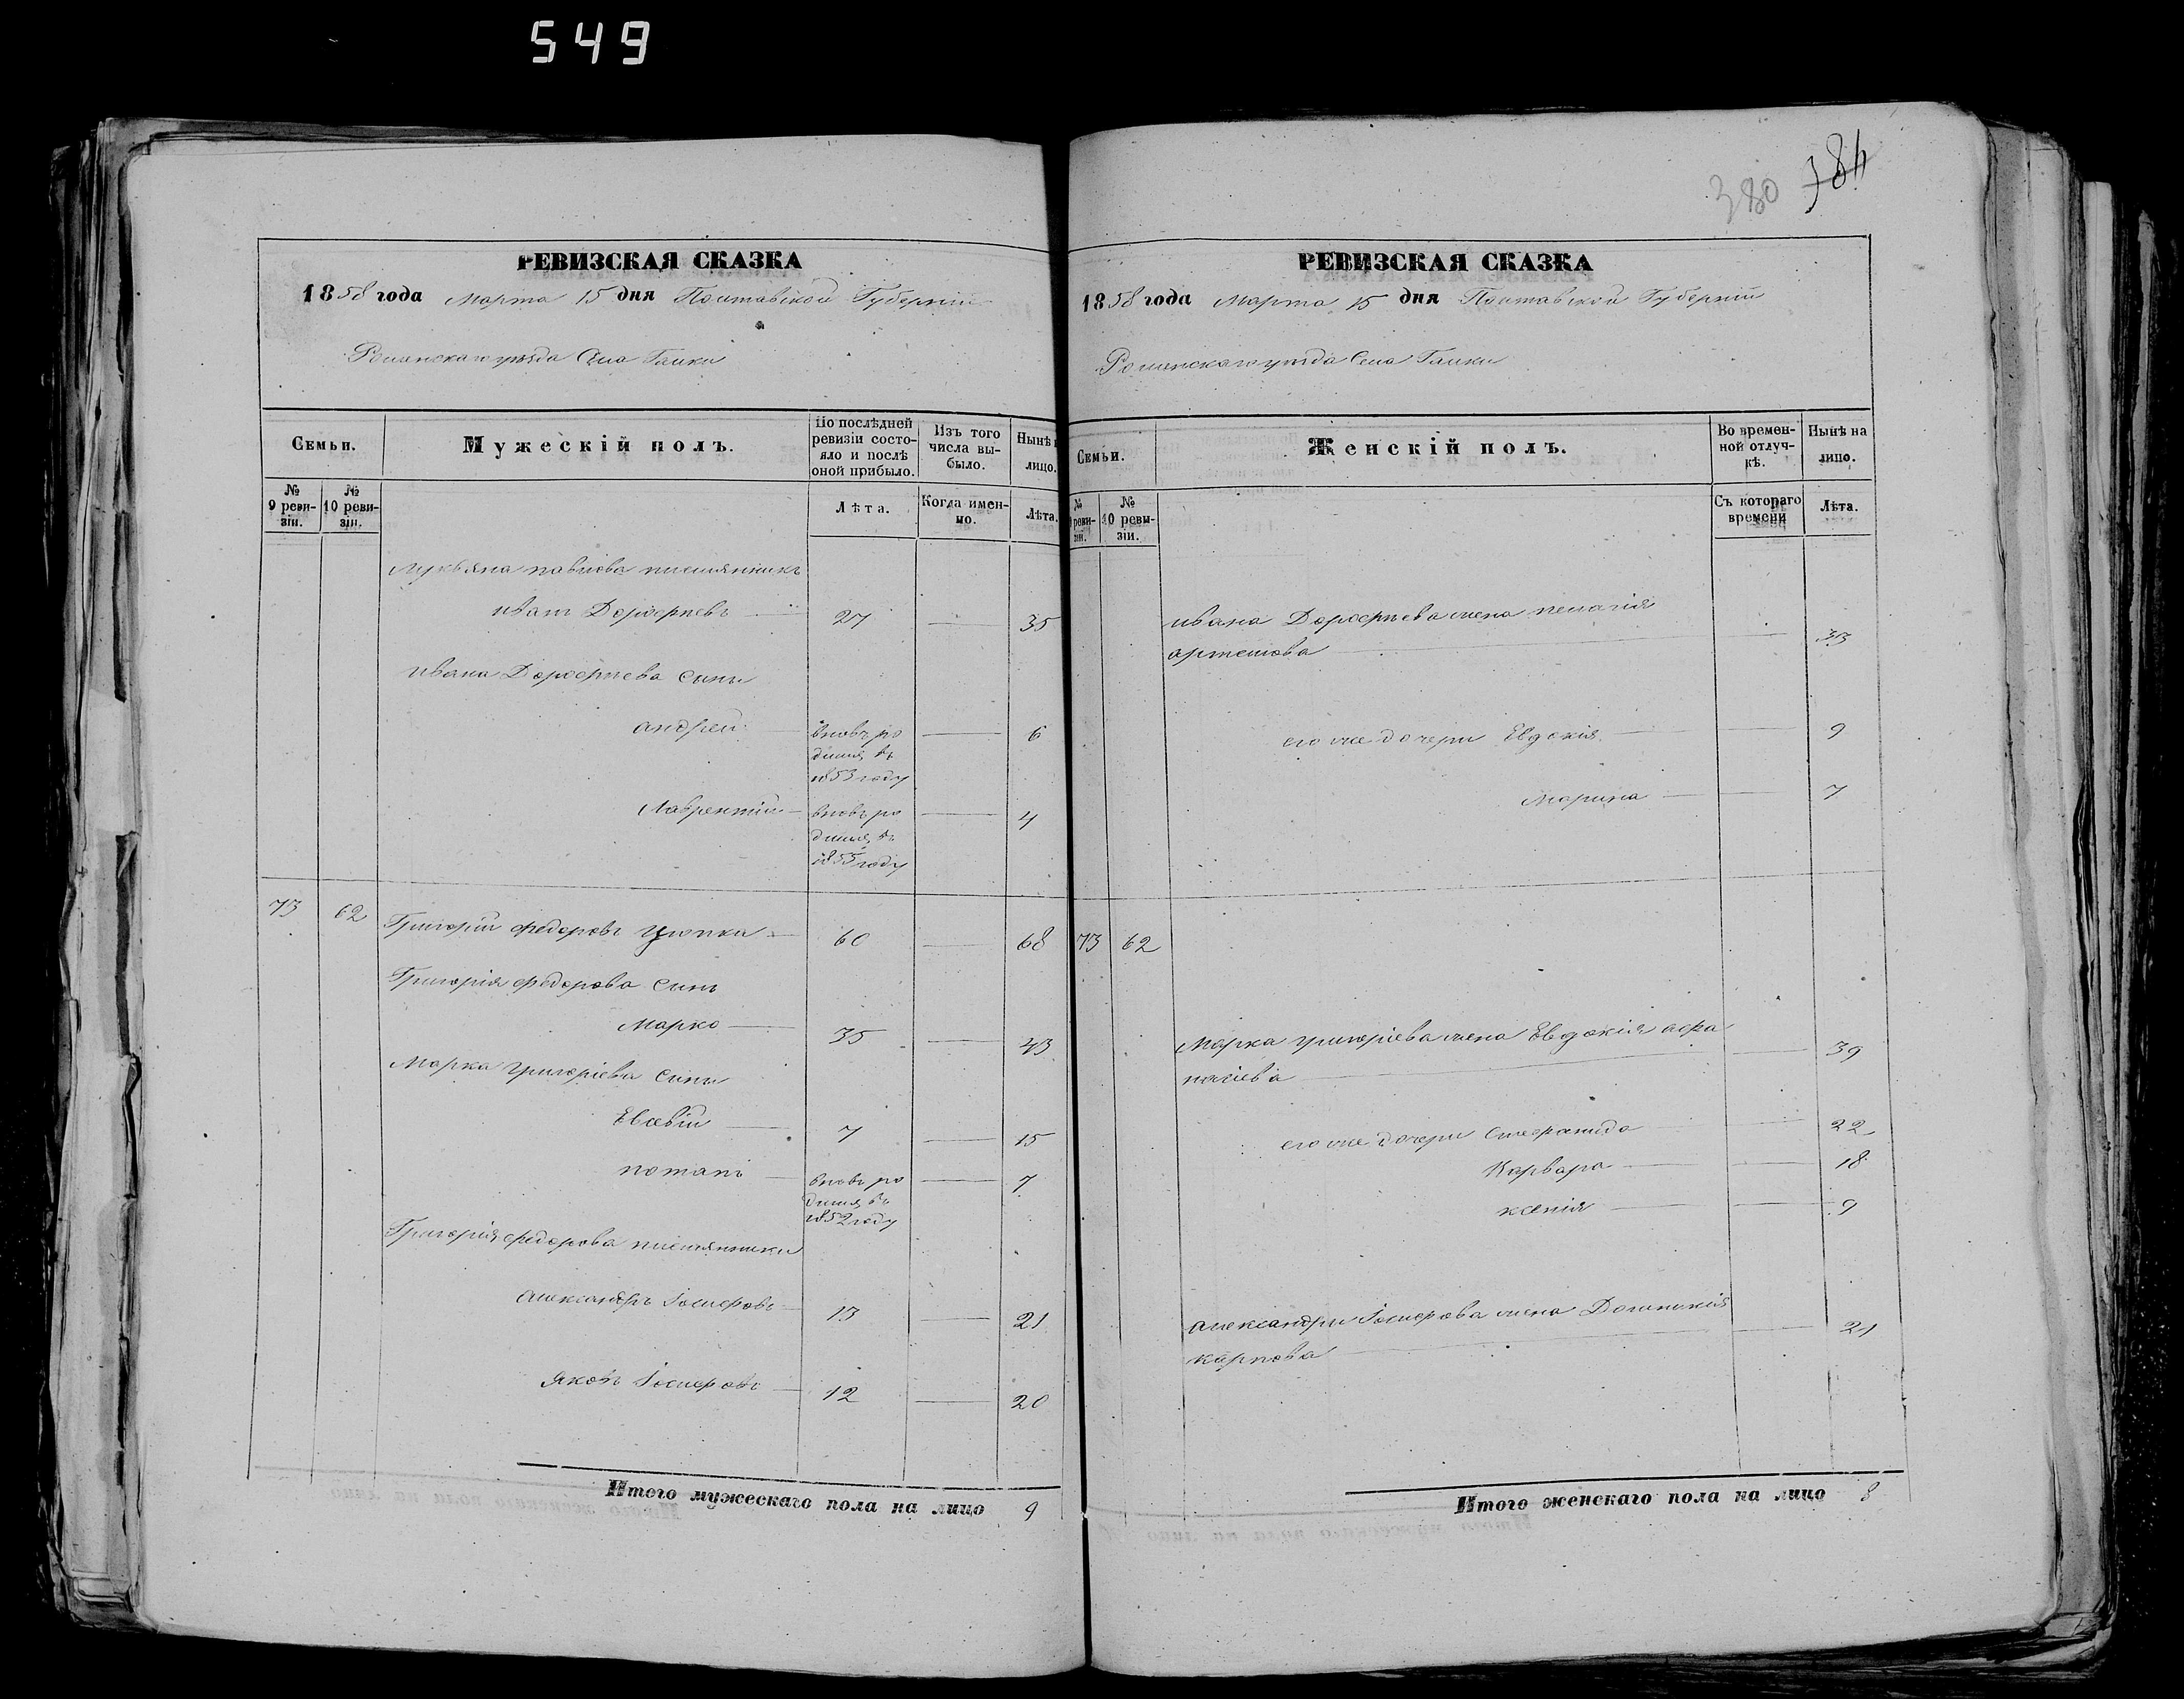 549
380 384
РЕВИЗСКАЯ СКАЗКА
1858 года Марта 15 дня Полтавской Губерніи
Роменскаго уѣзда Села Галки
Семьи.
Мужескій полъ.
По послѣдней ревизіи состояло и послѣ оной прибыло.
Изъ того числа выбыло.
Нынѣ на лицо.
№ 9 ревизіи.
№ 10 ревизіи.
Лѣта.
Когда именно.
Лѣта.
Лукьяна павлова племянникъ
иванъ Дорофеевъ 27 35
ивана Дорофеева сины
андрей вновь ро 6
дился въ
1853 году
Лаврентій вновь ро 4
дился въ
1855 году
73 62 Григорій федоровъ 60 68
Григорія федорова синъ
Марко 35 43
Марка григоріева сины
Евсевій 7 15
потапъ вновь ро 7
дился въ
1852 году
Григорія федорова племянники
александръ 13 21
яковъ 12 20
Итого мужескаго пола на лицо 9
РЕВИЗСКАЯ СКАЗКА
1858 года Марта 15 дня Полтавской Губерніи
Роменскаго уѣзда Села Галки
Семьи.
Женскій полъ.
Во временной отлучкѣ.
Нынѣ на лицо.
№ 9 ревизіи.
№ 10 ревизіи.
Съ котораго времени
Лѣта.
ивана Дорофеева жена пелагія
артемова 33
его же дочери Евдокія 9
Марина 7
73 62
Марка григоріева жена Евдокія афа
насіева 39
его же дочери Стефанида 22
Варвара 18
ксенія 9
александры жена Домникія
карпова 21
Итого женскаго пола на лицо 8